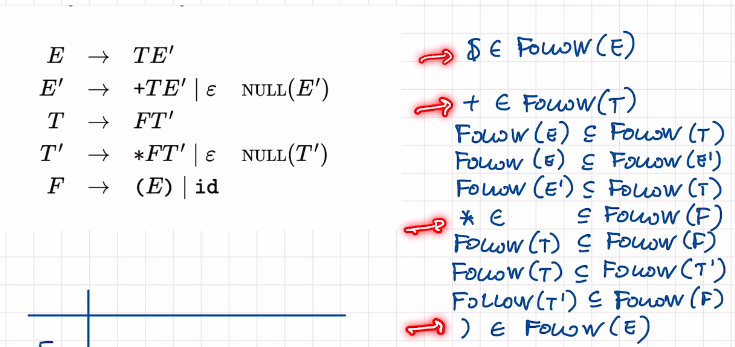 E → TE′
E′ → +TE′ | ε NULL(E′)
T → FT′
T′ → *FT′ | ε NULL(T′)
F → (E) | id
$ ∈ Follow(E)
+ ∈ Follow(T)
Follow(E) ⊆ Follow(T)
Follow(E) ⊆ Follow(E')
Follow(E') ⊆ Follow(T)
* ∈ ⊆ Follow(F)
Follow(T) ⊆ Follow(F)
Follow(T) ⊆ Follow(T')
Follow(T') ⊆ Follow(F)
) ∈ Follow(E)